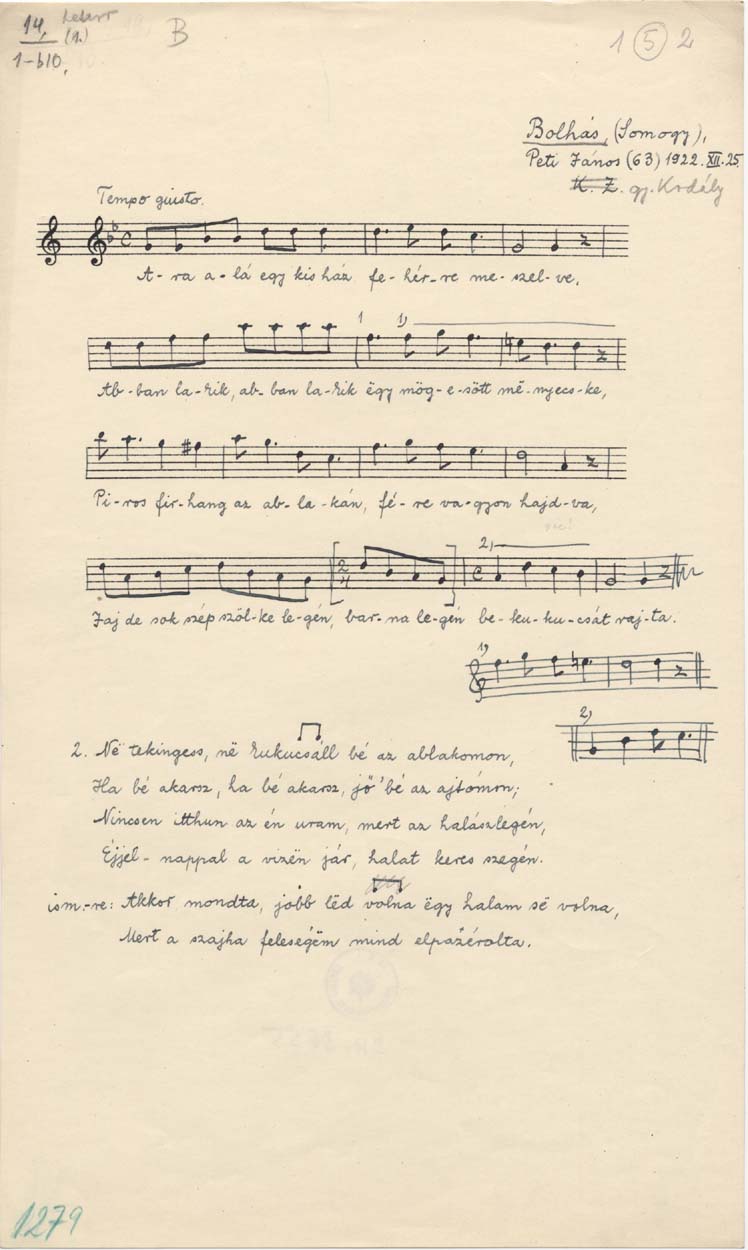 14,
(1.)
1-b10,
B
1 5 2
Bolhás, (Somogy),
Peti János (63) 1922. XII. 25.
K. Z. gy. Kodály
Tempo giusto.
A-ra a-lá egy kis ház fe-hér-re me-szel-ve,
Ab-ban la-kik, ab-ban la-kik ëgy mög-e-sött më-nyecs-ke,
Pi-ros fir-hang az ab-la-kán, fé-re va-gyon hajd-va,
Jaj de sok szép szöl-ke le-gén, bar-na le-gén be-ku-ku-csát raj-ta.
1)
2)
2. Në tekingess, në kukucsáll bé az ablakomon,
Ha bé akarsz, ha bé akarsz, jő' bé az ajtómon;
Nincsen itthun az én uram, mert az halászlegén,
Éjjel-nappal a vizën jár, halat keres szegén.
ism.-re: Akkor mondta, jobb lëd volna ëgy halam së volna,
Mert a szajha feleségëm mind elpazérolta.
1279